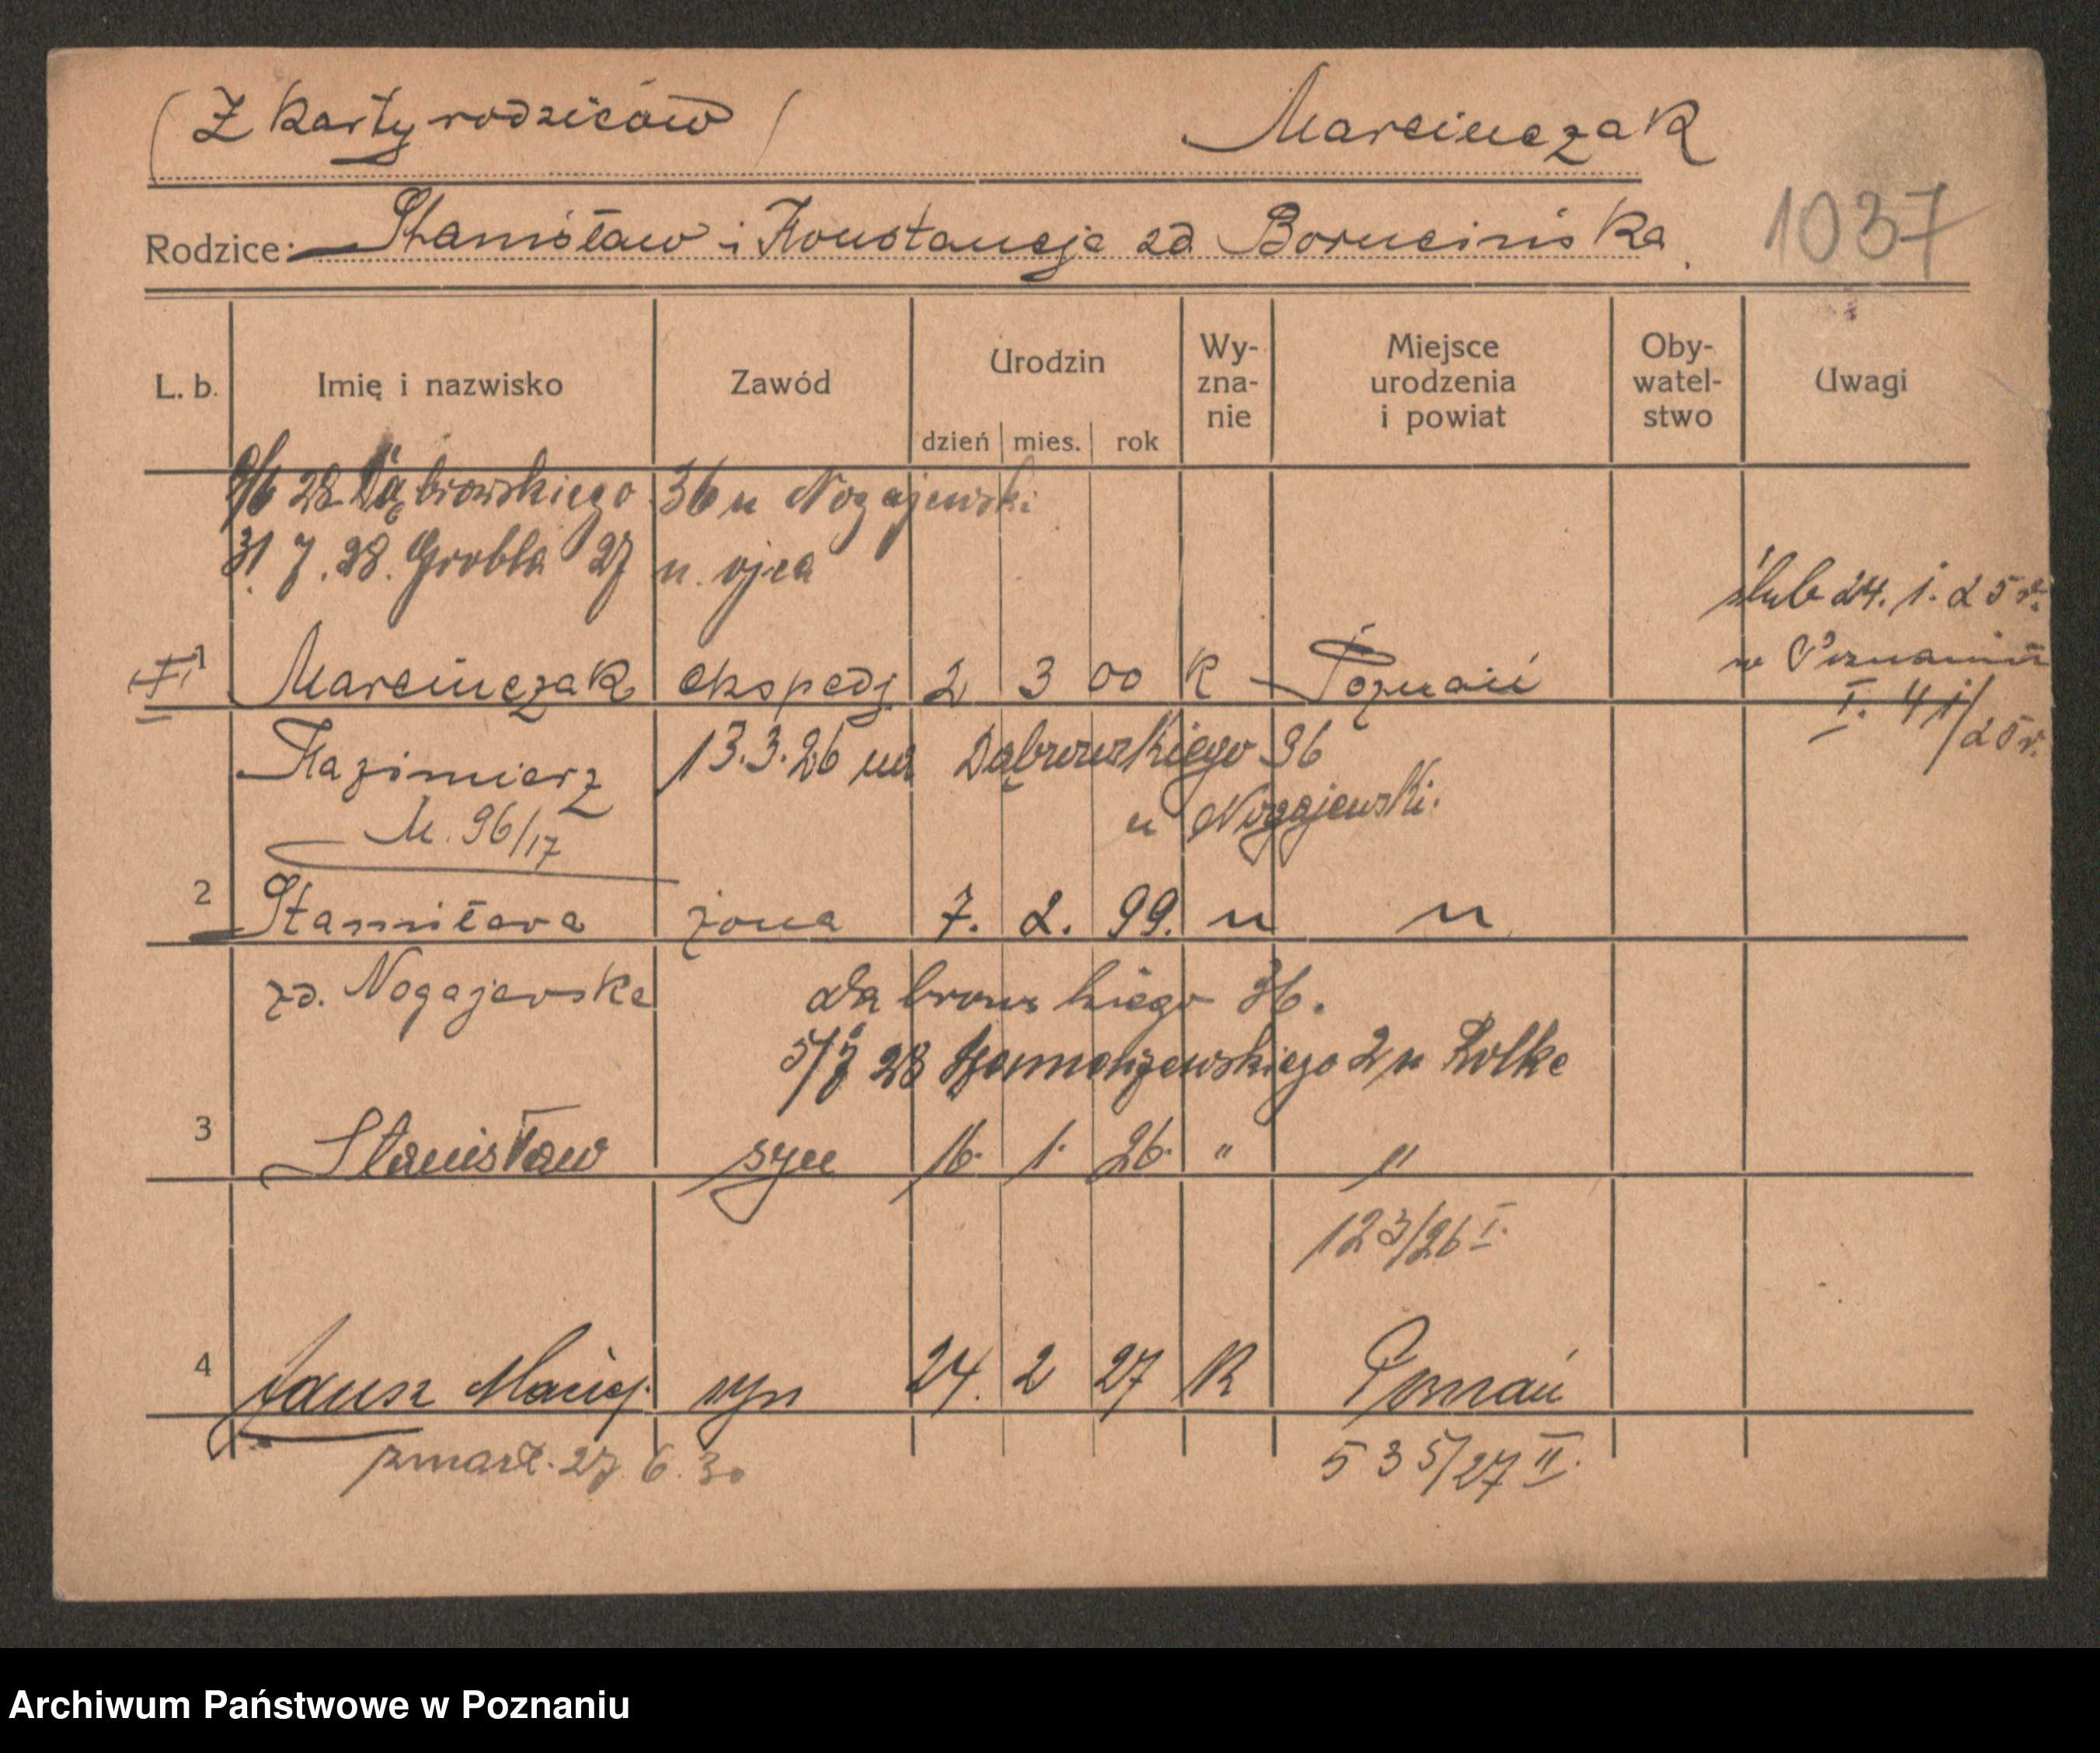 (Z karty rodziców) Marcinczak
Rodzice: Stanisław i Konstancja zd Borucińska 1037
L. b. Imię i nazwisko Zawód Urodzin dzień mies. rok Wy-zna-nie Miejsce urodzenia i powiat Oby-watel-stwo Uwagi
28 Dąbrowskiego 36 u Nogajewski
31.7.28. Grobla 27 u. ojca
ślub 24. 1. 25 r.
w Poznaniu
1 Marcinczak ekspedj 2 3 00 K Poznań
I. 41/25 r.
Kazimierz 13.3.26 na Dąbrowskiego 36
u Nogajewski.
M. 96/17
2 Stanisława żona 7. 2. 99. " "
zd. Nogajewska Dąbrowskiego 36.
5/7 28 2 u Rolke
3 Stanisław syn 16. 1. 26. " "
123/26 I.
4 Janusz Maciej. syn 24. 2 27 K Poznań
zmarł. 27.6.30 535/27 II.
Archiwum Państwowe w Poznaniu